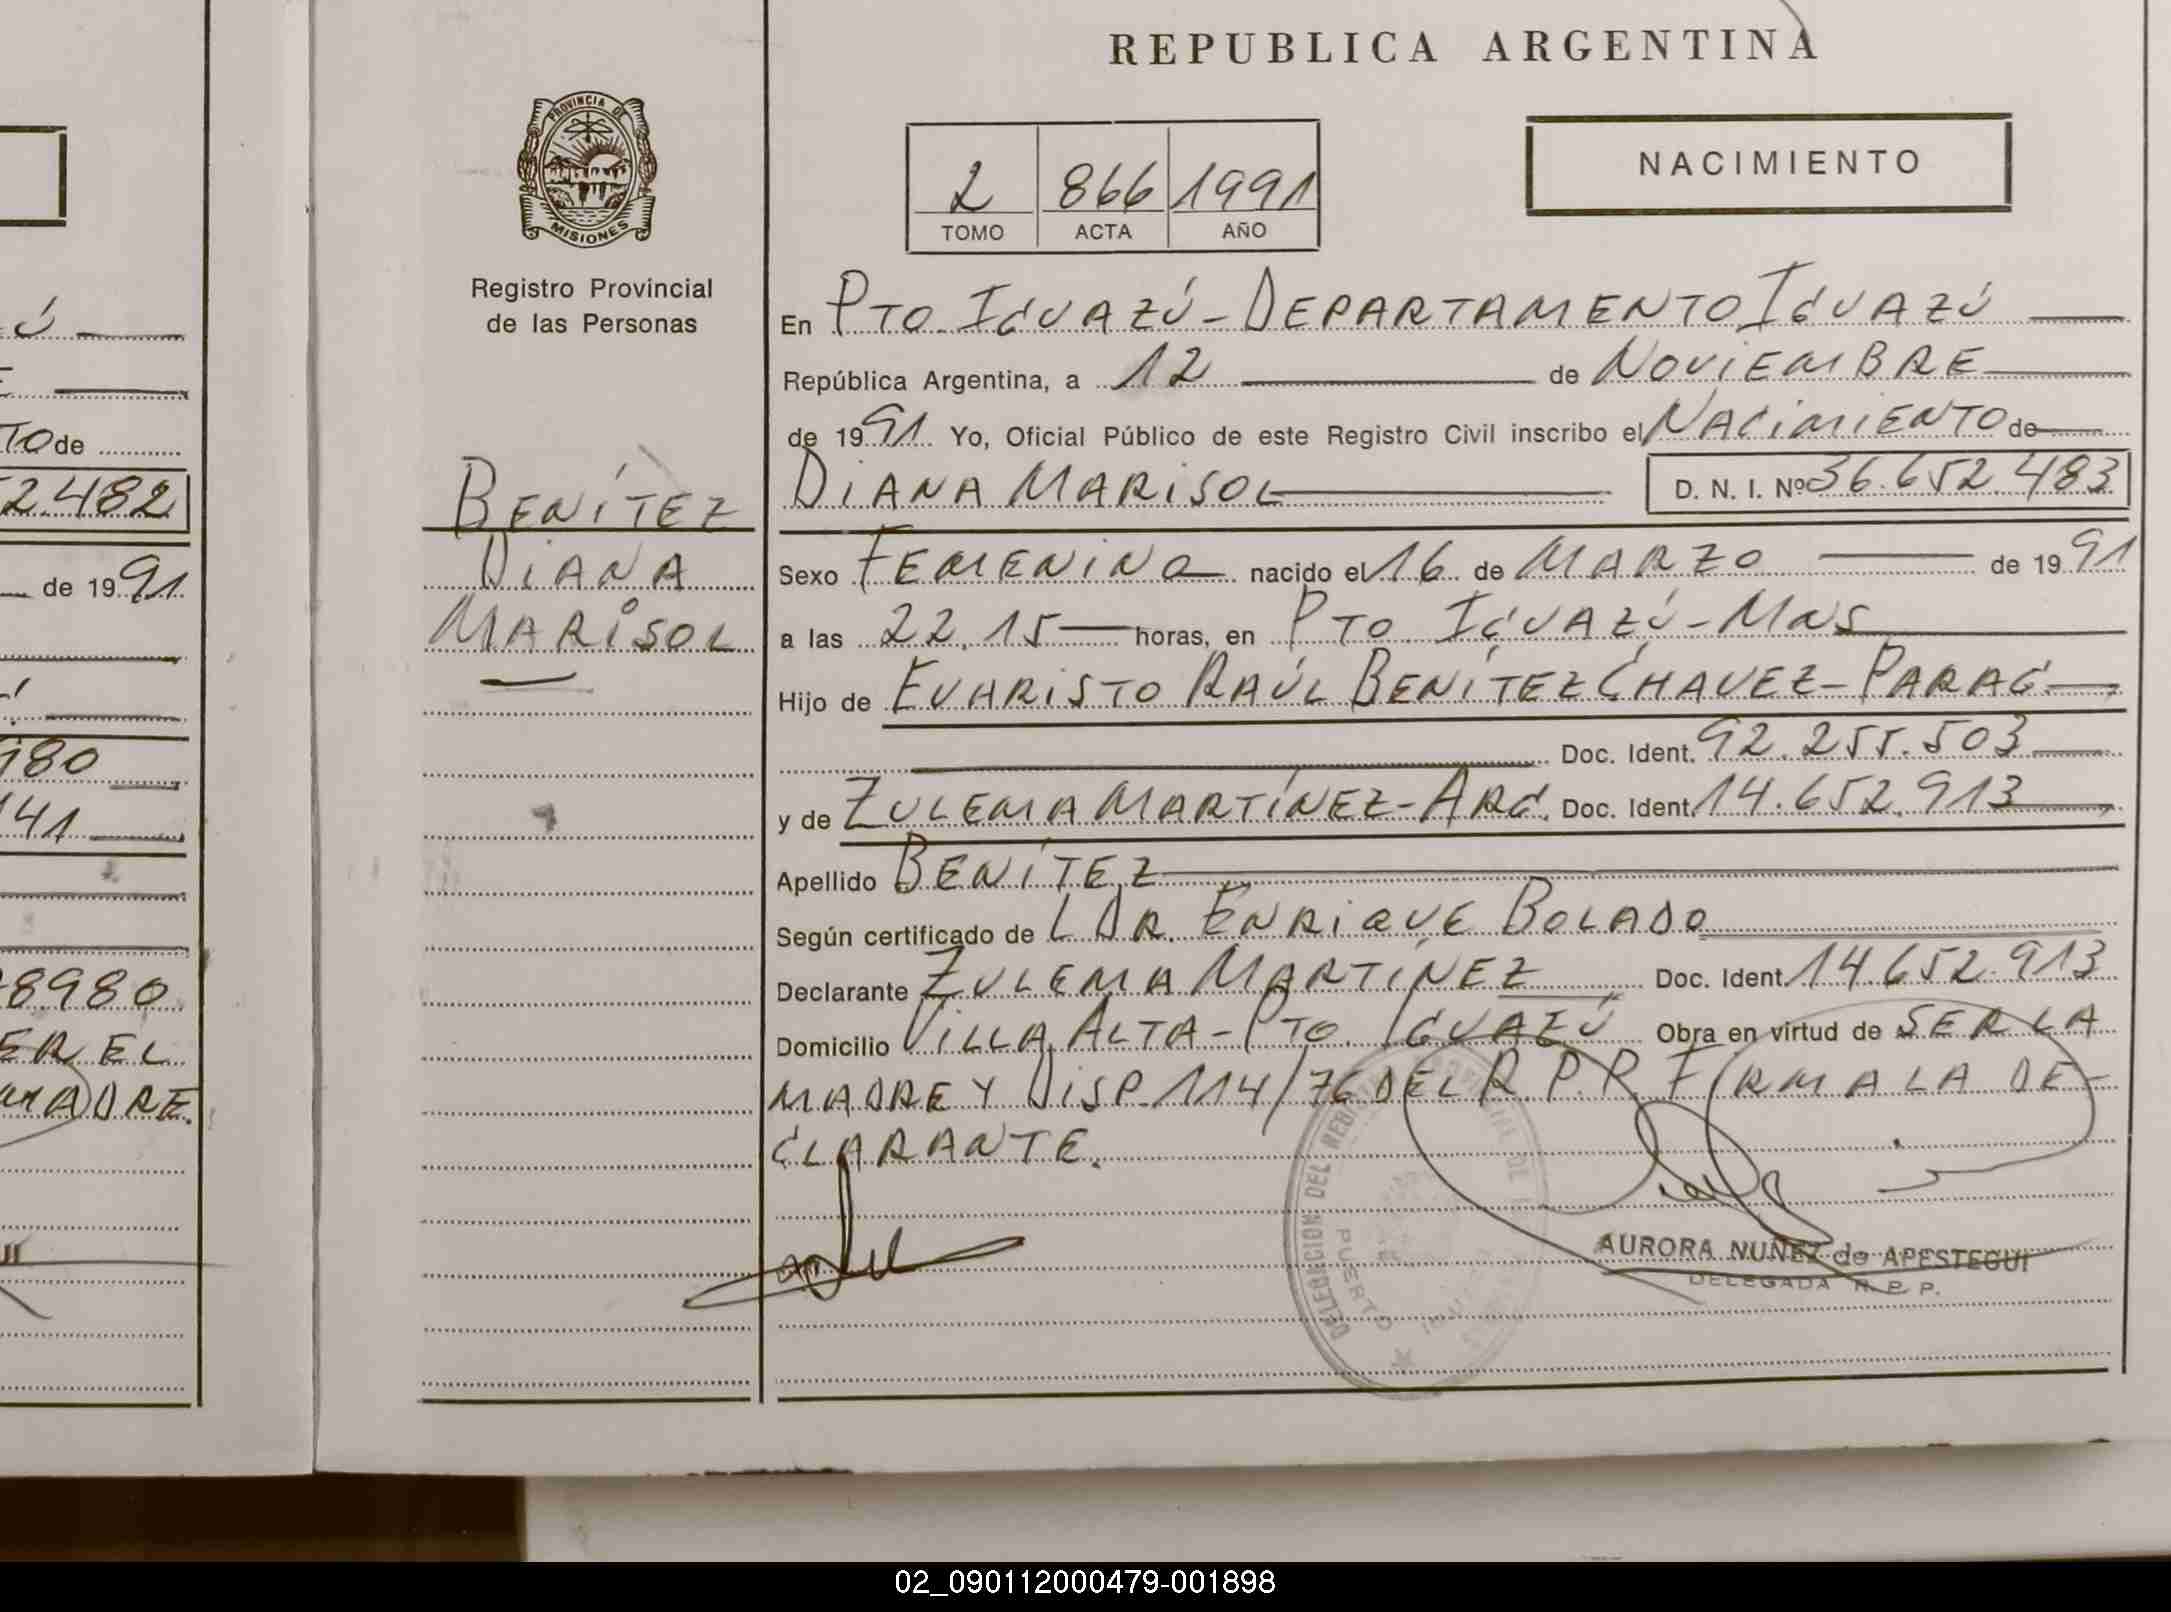 REPUBLICA ARGENTINA
PROVINCIA DE
MISIONES
Registro Provincial
de las Personas
2 866 1991
TOMO ACTA AÑO
NACIMIENTO
En PTO. IGUAZÚ - DEPARTAMENTO IGUAZÚ
República Argentina, a 12 de NOVIEMBRE
de 1991 Yo, Oficial Público de este Registro Civil inscribo el NACIMIENTO de
DIANA MARISOL D. N. I. Nº 36.652.483
BENÍTEZ
DIANA
MARISOL
Sexo FEMENINO nacido el 16 de MARZO de 1991
a las 22,15 horas, en PTO. IGUAZÚ - MNS
Hijo de EVARISTO RAÚL BENÍTEZ CHAVEZ - PARAG
Doc. Ident. 92.255.503
y de ZULEMA MARTÍNEZ - ARG. Doc. Ident. 14.652.913
Apellido BENÍTEZ
Según certificado de L DR. ENRIQUE BOLADO
Declarante ZULEMA MARTÍNEZ Doc. Ident. 14.652.913
Domicilio VILLA ALTA - PTO. IGUAZÚ Obra en virtud de SER LA
MADRE Y DISP. 114/76 DEL R.P.P. FIRMA LA DE-
CLARANTE.
DELEGACION DEL
PUERTO
AURORA NUÑEZ de APESTEGUI
DELEGADA R. P. P.
Ú
TO de
2.482
de 1991
980
141
8980
ER EL
MADRE.
02_090112000479-001898